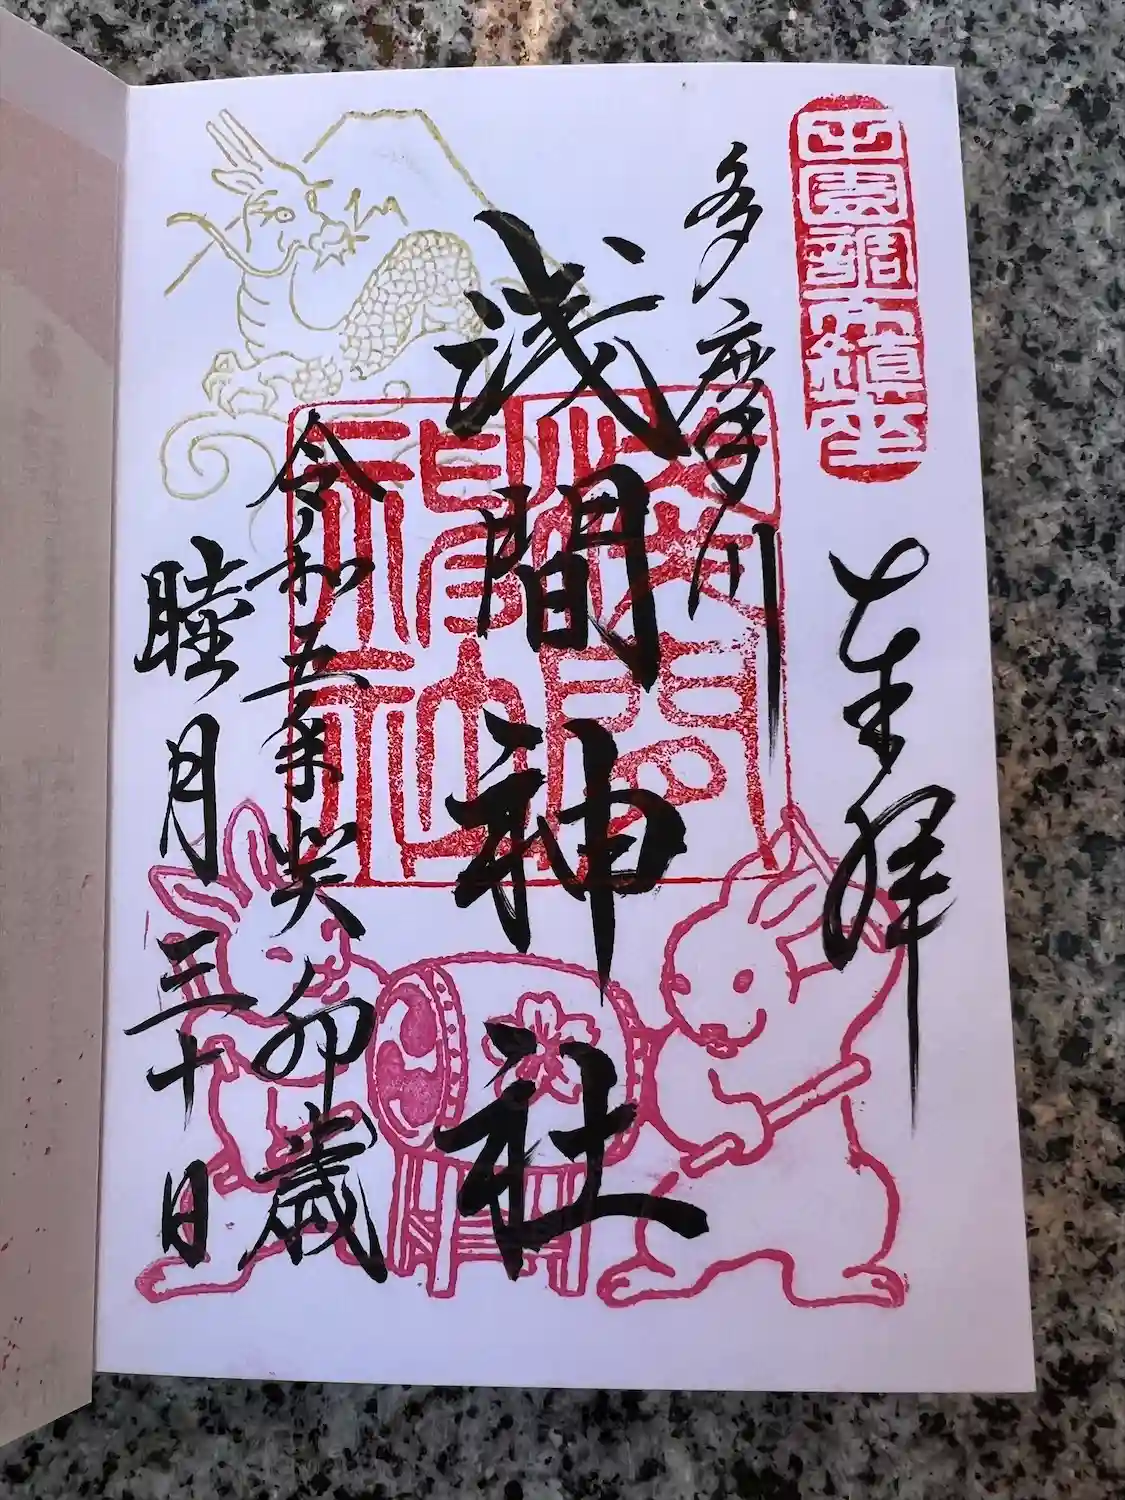 奉拝
多摩川
浅間神社
令和五年癸卯歳
睦月三十日
浅間神社